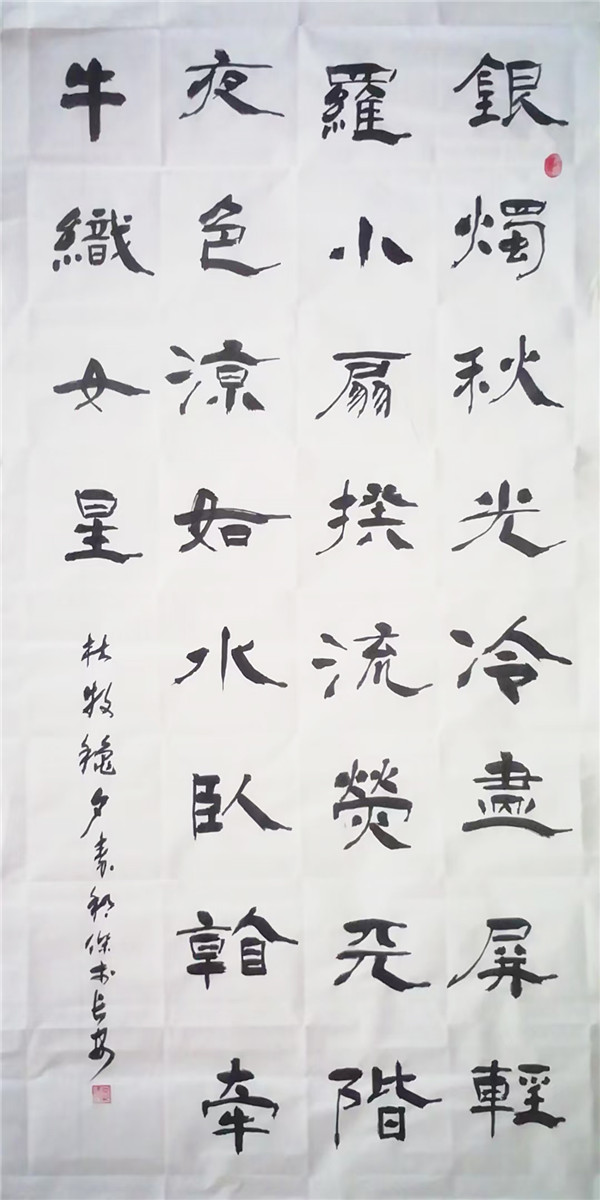 銀燭秋光冷盡屏輕
羅小扇撲流熒天階
夜色涼如水臥看牽
牛織女星
杜牧龝夕 傑於長安